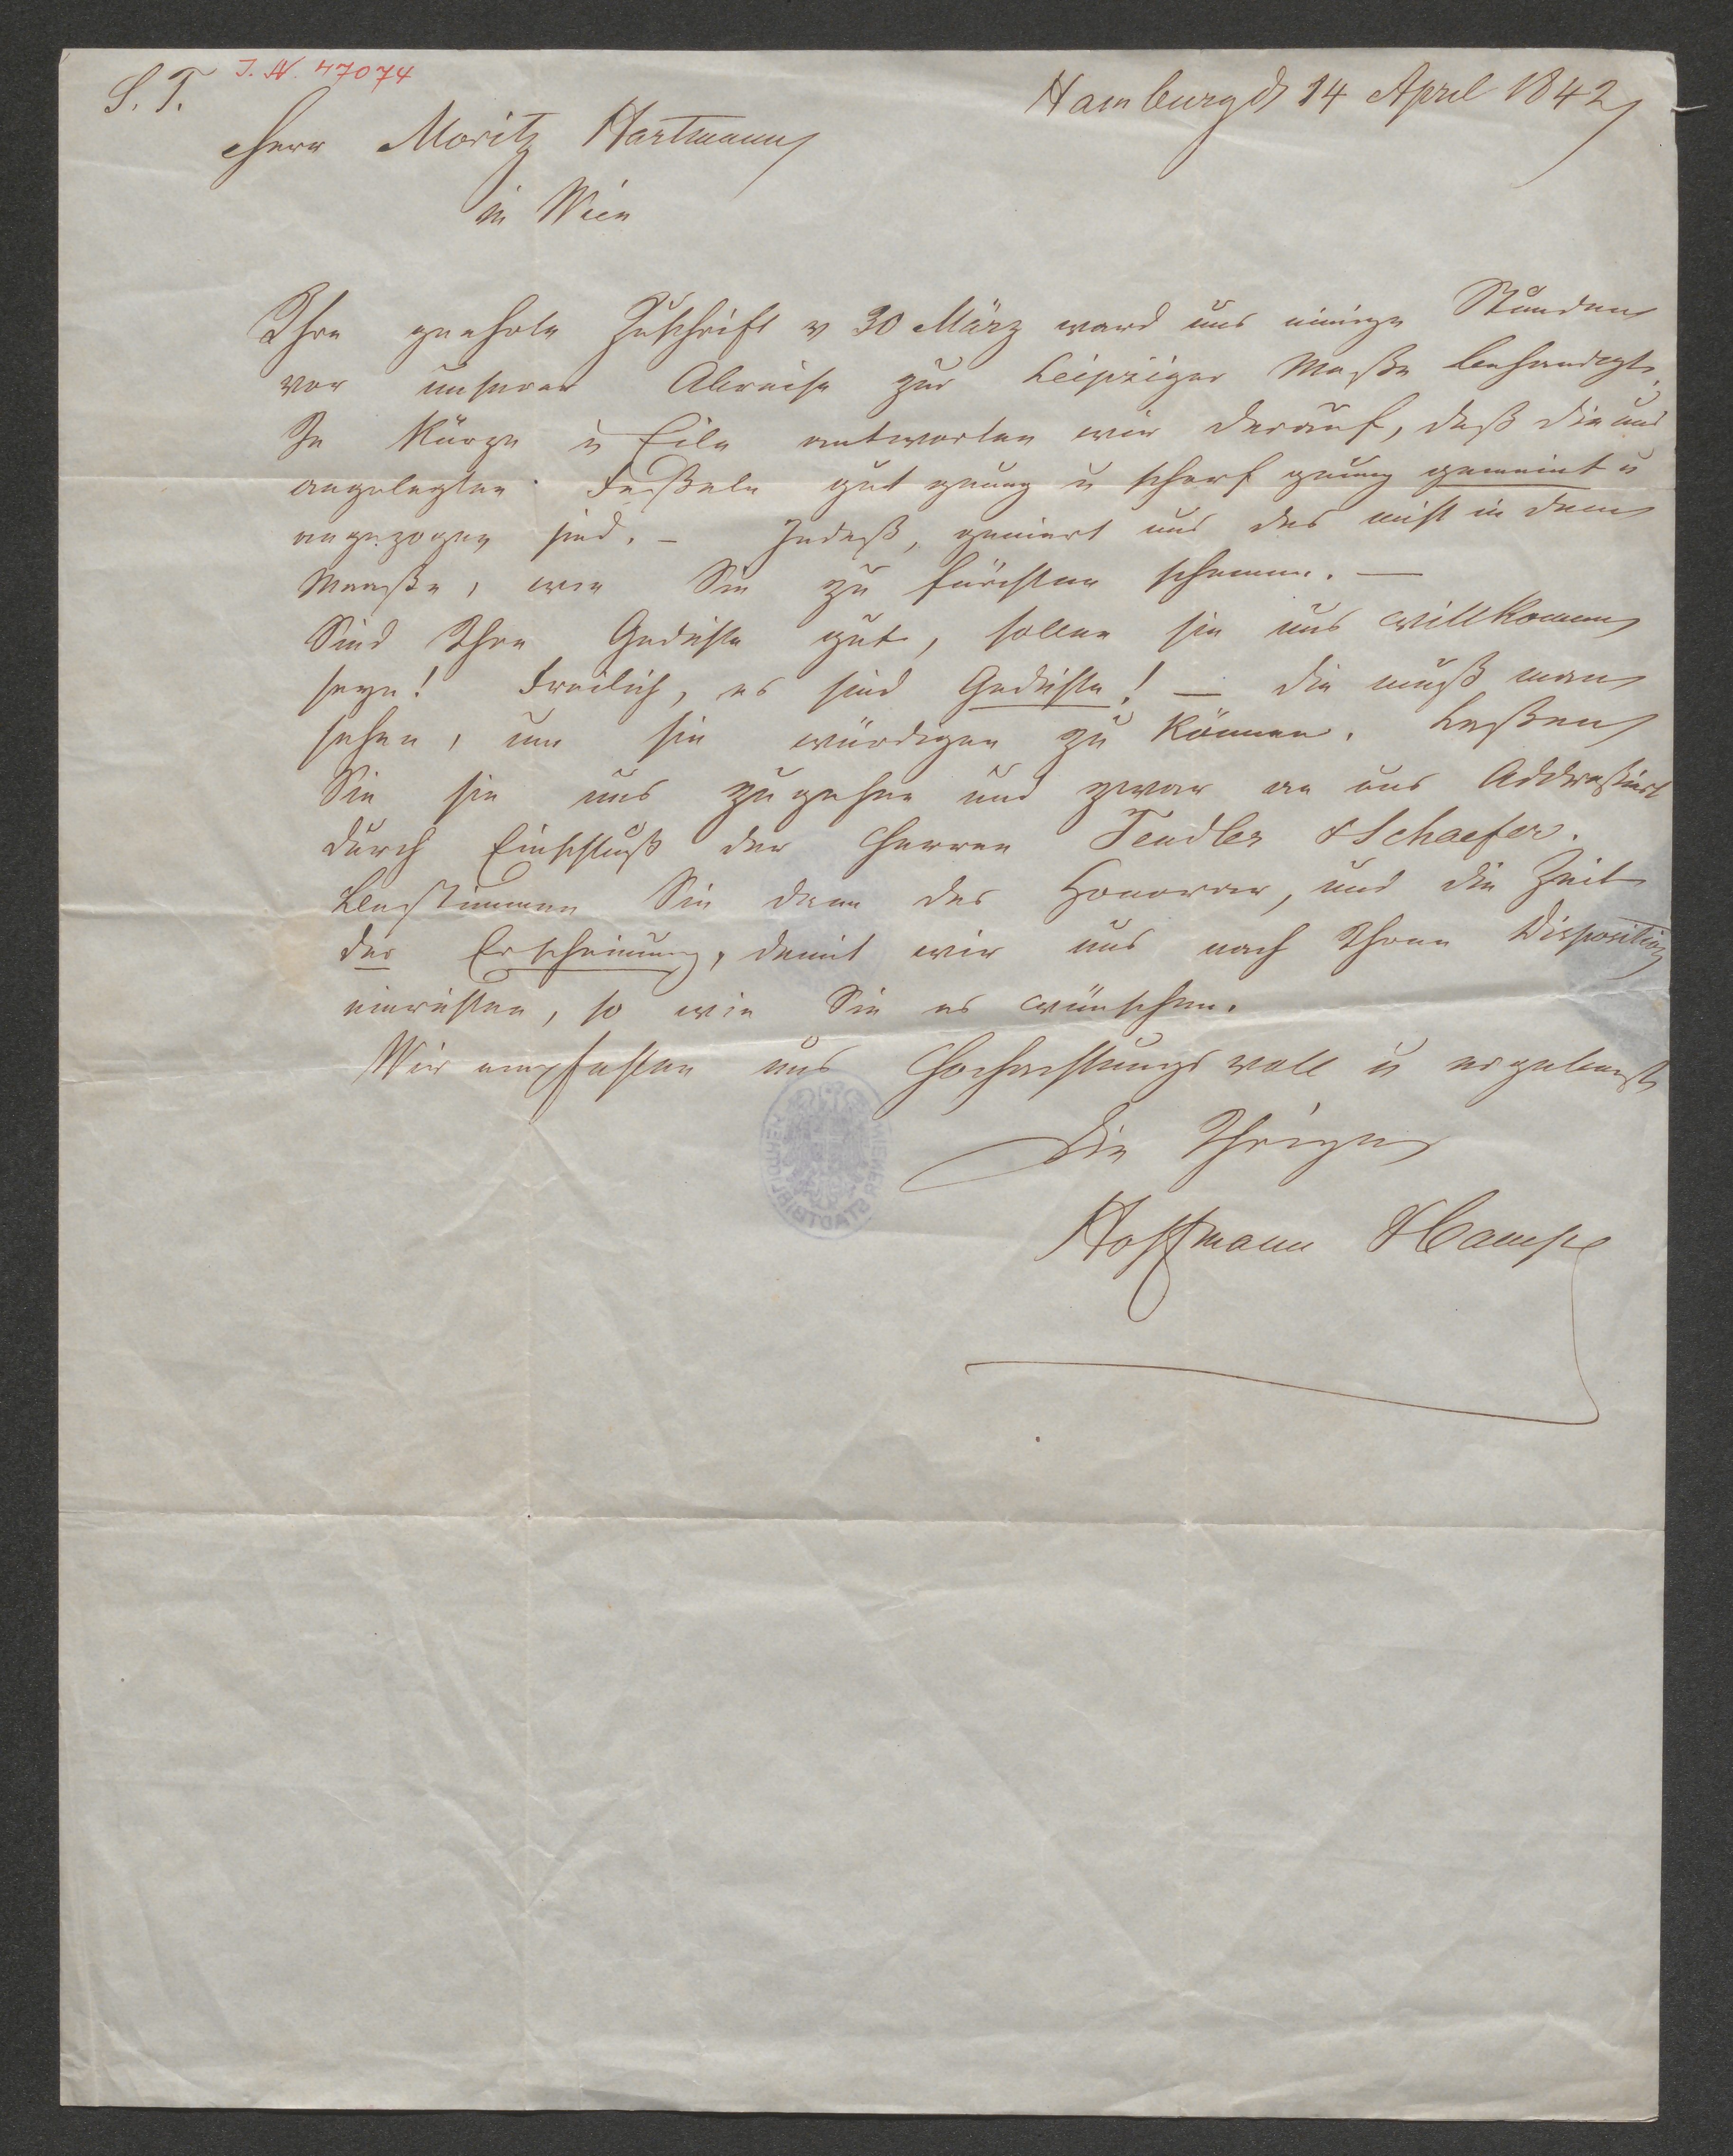 S. T.
J. N. 47074
Hamburg d 14 April 1842
Herr Moritz Hartmann
in Wien
Ihre geehrte Zuschrift v 30 März ward uns einige Stunden
vor unserer Abreise zur Leipziger Messe behändigt.
In Kürze u Eile antworten wir darauf, daß die uns
angelegten Feßeln gut genug u scharf genug gemeint u
angezogen sind. – Indeß, geniert uns das nicht in dem
Maaße, wie Sie zu fürchten scheinen. —
Sind Ihre Gedichte gut, sollen sie uns willkommen
seyn! Freilich, es sind Gedichte! — die muß man
sehen, um sie würdigen zu können. Laßen
Sie sie uns zugehen und zwar an uns Addressirt
durch Einschluß der Herren Tendler & Schaefer.
Bestimmen Sie dann das Honorar, und die Zeit
der Erscheinung, damit wir uns nach Ihrer Disposition
einrichten, so wie Sie es wünschen.
Wir empfehlen uns Hochachtungsvoll u ergebenst
Die Ihrigen
Hoffmann & Campe
WIENER STADTBIBL